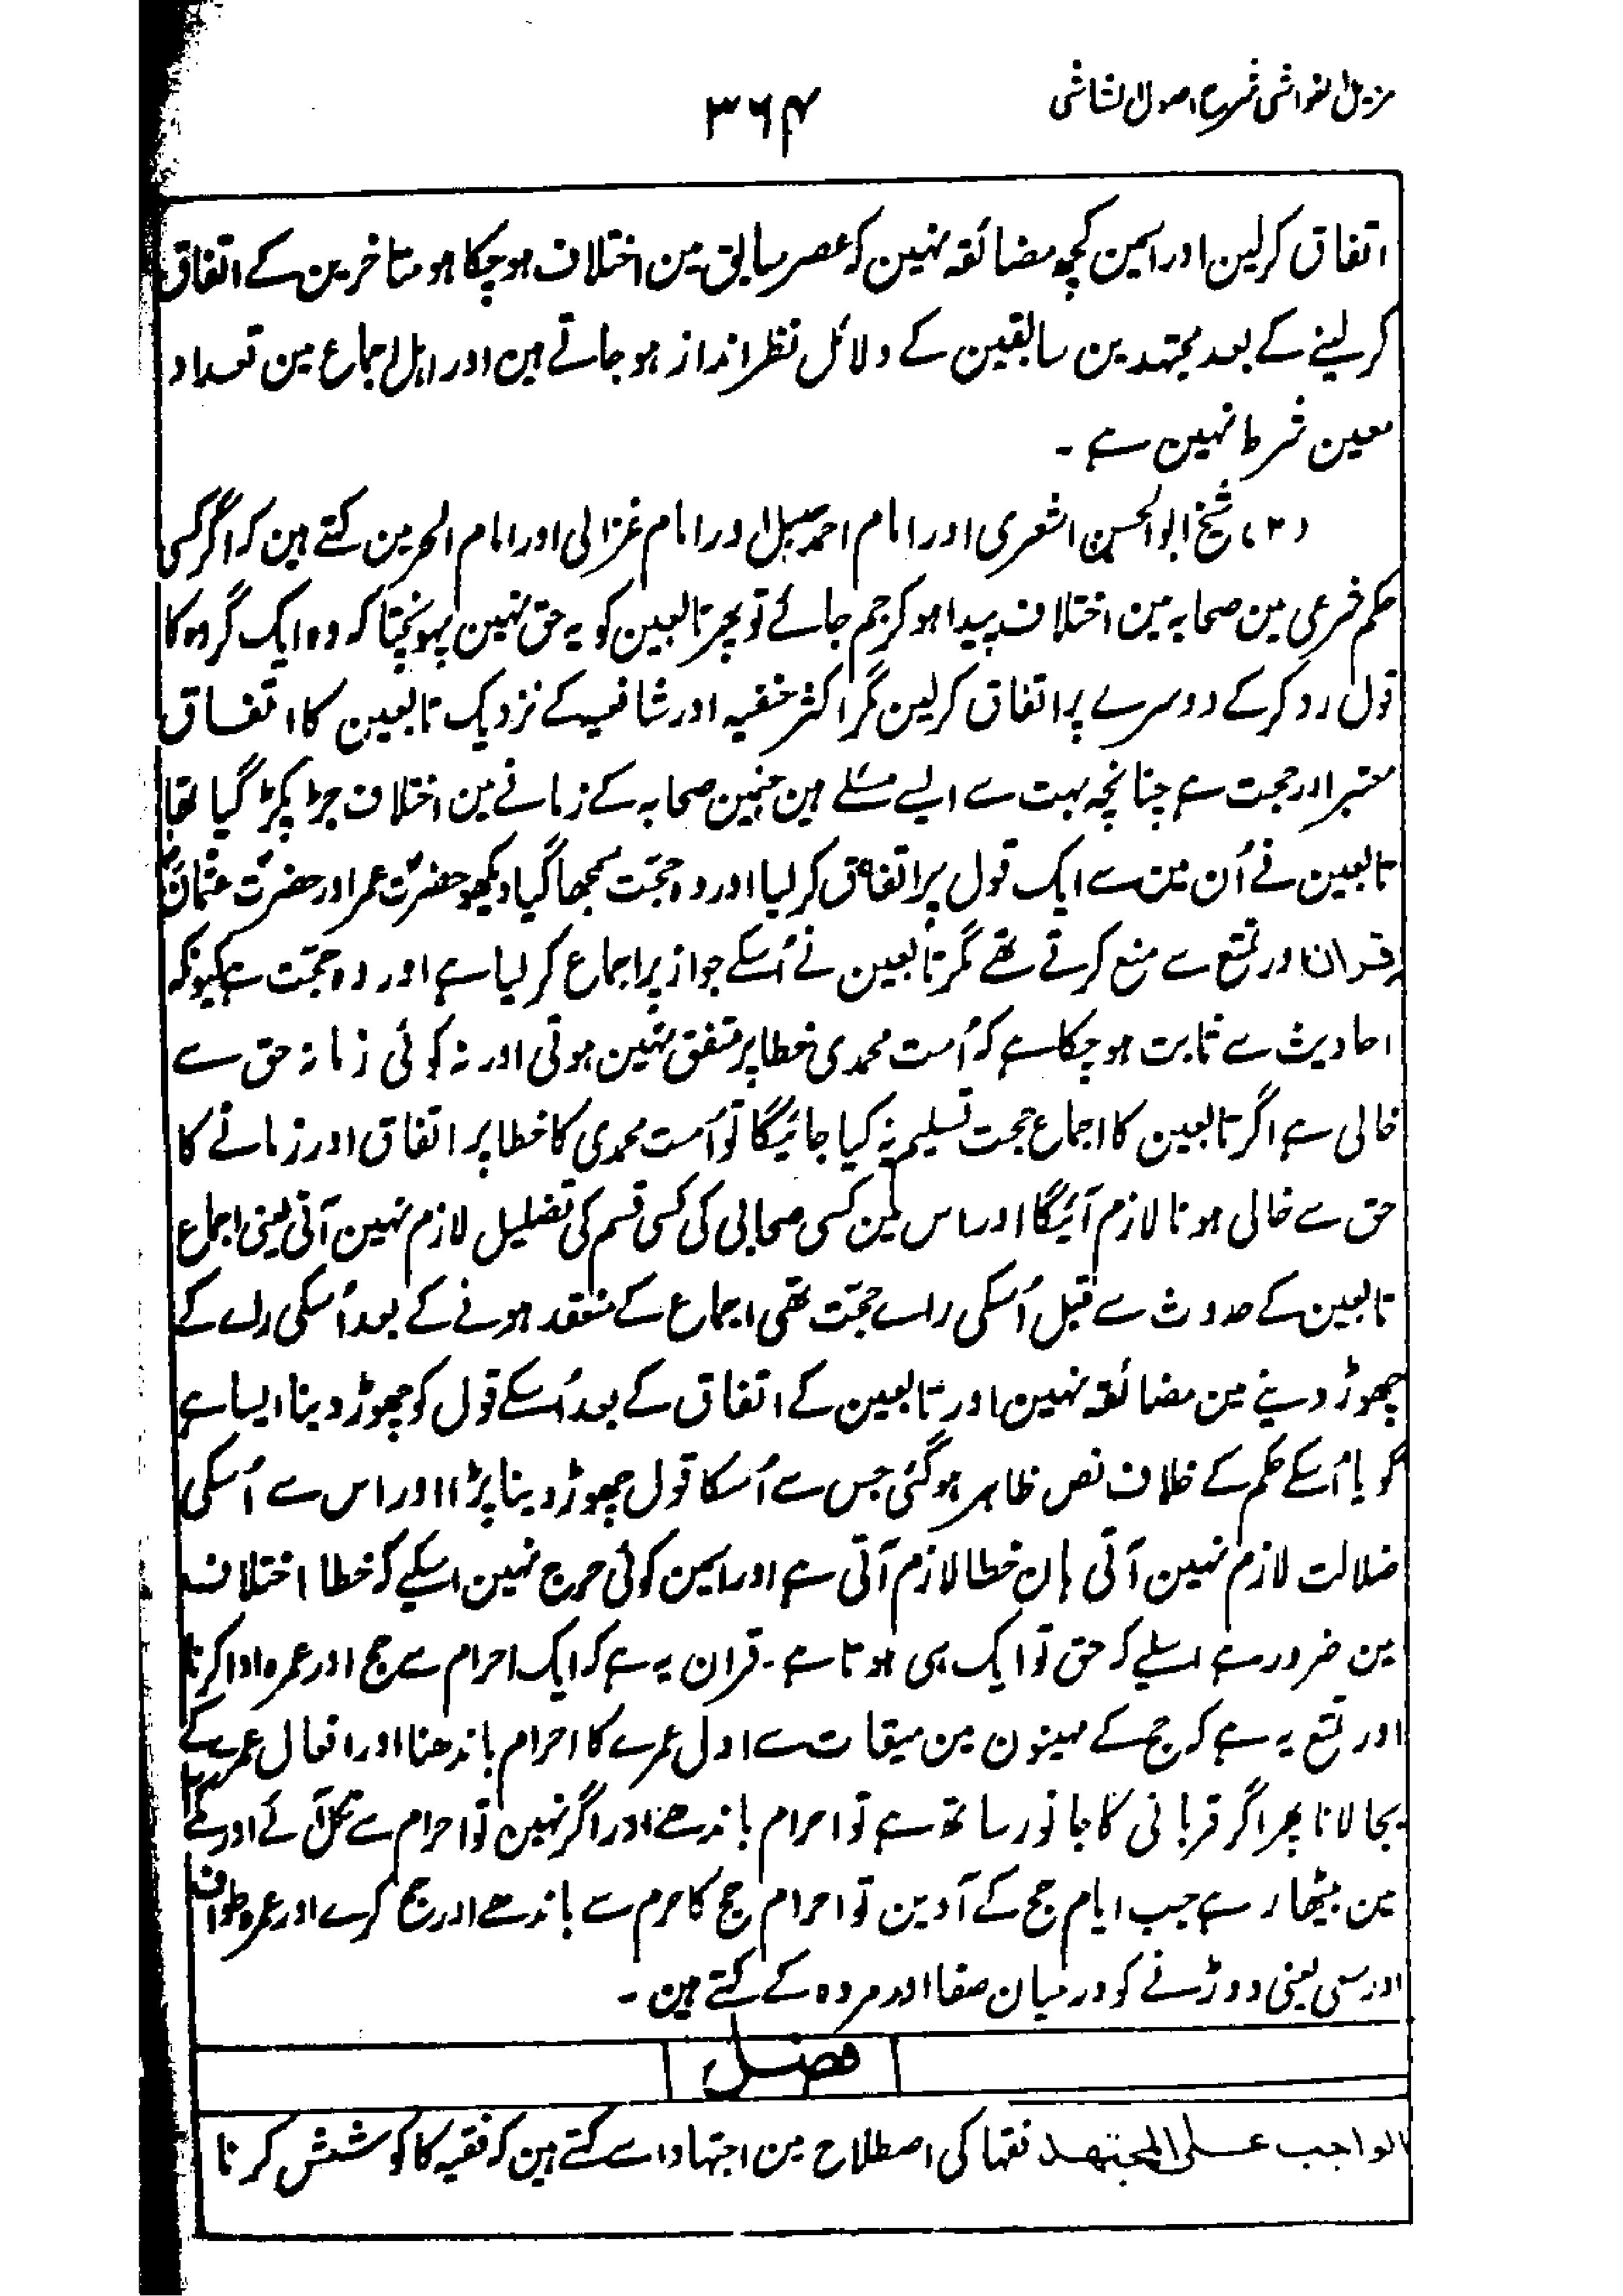 مزیل الغواشی شرح اصول الشاشی
۳۶۴
اتفاق کرلین اور اسمین کچھ مضائقہ نہین کہ عصر سابق مین اختلاف ہوچکا ہو متاخرین کے اتفاق
کرلینے کے بعد مجتہدین سابقین کے دلائل نظر انداز ہوجاتے ہین اور اہل اجماع مین تعداد
معین شرط نہین ہے ۔
(۳) شیخ ابوالحسن اشعری اور امام احمد حنبل اور امام غزالی اور امام الحرمین کہتے ہین کہ اگر کسی
حکم فرعی مین صحابہ مین اختلاف پیدا ہوکر جم جائے تو پھر تابعین کو یہ حق نہین پہونچتا کہ وہ ایک گروہ کا
قول رد کرکے دوسرے پر اتفاق کرلین مگر اکثر حنفیہ اور شافعیہ کے نزدیک تابعین کا اتفاق
معتبر اور حجت ہے چنانچہ بہت سے ایسے مسئلے ہین جنمین صحابہ کے زمانے مین اختلاف جڑ پکڑ گیا تھا
تابعین نے اُن مین سے ایک قول پر اتفاق کرلیا اور وہ حجّت سمجھا گیا دیکھو حضرت عمر اور حضرت عثمان
قران اور تمتع سے منع کرتے تھے مگر تابعین نے اُسکے جواز پر اجماع کرلیا ہے اور وہ حجّت ہے کیونکہ
احادیث سے ثابت ہوچکا ہے کہ اُمت محمدی خطا پر متفق نہین ہوتی اور نہ کوئی زمانہ حق سے
خالی ہے اگر تابعین کا اجماع حجت تسلیم نہ کیا جائیگا تو اُمت محمدی کا خطا پر اتفاق اور زمانے کا
حق سے خالی ہونا لازم آئیگا اور اس مین کسی صحابی کی کسی قسم کی تضلیل لازم نہین آتی یعنی اجماع
تابعین کے حدوث سے قبل اُسکی راے حجّت تھی اجماع کے منعقد ہونے کے بعد اُسکی راے کے
چھوڑ دینے مین مضائقہ نہین اور تابعین کے اتفاق کے بعد اُسکے قول کو چھوڑ دینا ایسا ہے
گویا اُسکے حکم کے خلاف نص ظاہر ہوگئی جس سے اُسکا قول چھوڑ دینا پڑا اور اس سے اُسکی
ضلالت لازم نہین آتی ہان خطا لازم آتی ہے اور اسمین کوئی حرج نہین اسلیے کہ خطا اختلاف
مین ضرور ہے اسلیے کہ حق تو ایک ہی ہوتا ہے ۔ قران یہ ہے کہ ایک احرام سے حج اور عمرہ ادا کرنا
اور تمتع یہ ہے کہ حج کے مہینون مین میقات سے اول عمرے کا احرام باندھنا اور افعال عمرے کے
بجا لانا پھر اگر قربانی کا جانور ساتھ ہے تو احرام باندھے اور اگر نہین تو احرام سے نکل آئے اور مکے
مین بیٹھا رہے جب ایام حج کے آوین تو احرام حج کا حرم سے باندھے اور حج کرے اور عمرہ طواف
اور سعی یعنی دوڑنے کو درمیان صفا اور مروہ کے کہتے ہین ۔
فصل
الواجب علی المجتهد فقہا کی اصطلاح مین اجتہاد اسے کہتے ہین کہ فقیہ کا کوشش کرنا